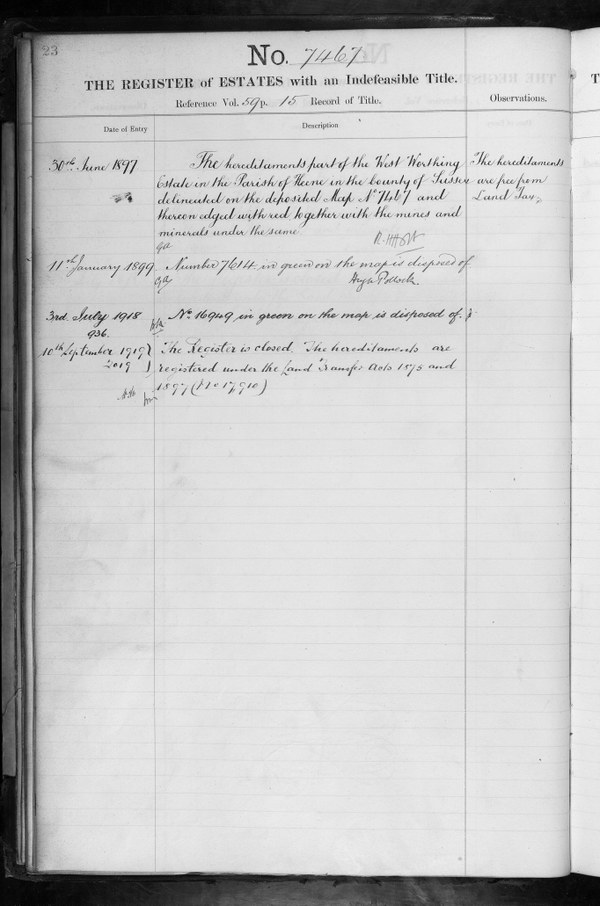 23
No. 7467
THE REGISTER of ESTATES with an Indefeasible Title.
Reference Vol. 59 p. 15 Record of Title.
Observations.
Date of Entry
Description
30th June 1897
The hereditaments part of the West Worthing
Estate in the Parish of Heene in the county of Sussex
delineated on the deposited Map No 7467 and
thereon edged with red together with the mines and
minerals under the same
The hereditaments
are free from
Land Tax
11th January 1899
Number 7614 in green on the map is disposed of
Hugh Pollock
3rd July 1918
936.
No. 16949 in green on the map is disposed of.
10th September 1919
2019
The Register is closed. The hereditaments are
registered under the Land Transfer Acts 1875 and
1897 (No 17,910)
T